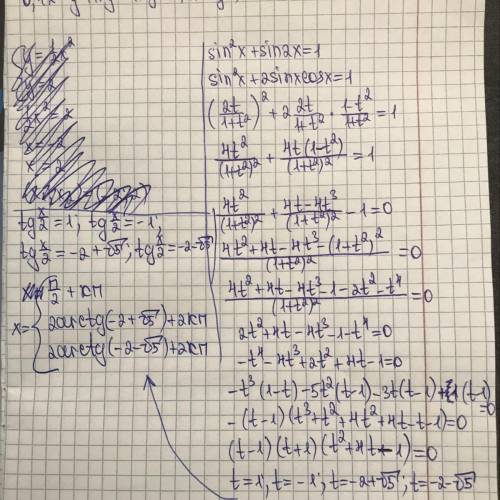 sin²x + sin2x = 1
sin²x + 2sinxcosx = 1
(2t/(1+t²))² + 2 2t/(1+t²) · (1-t²)/(1+t²) = 1
4t²/(1+t²)² + 4t(1-t²)/(1+t²)² = 1
4t²/(1+t²)² + (4t-4t³)/(1+t²)² - 1 = 0
(4t²+4t-4t³-(1+t²)²)/(1+t²)² = 0
(4t²+4t-4t³-1-2t²-t⁴)/(1+t²)² = 0
2t²+4t-4t³-1-t⁴=0
-t⁴-4t³+2t²+4t-1=0
-t³(1-t)-5t²(t-1)-3t(t-1)+1(t-1)=0
-(t-1)(t³+t²+4t²+4t-t-1)=0
(t-1)(t+1)(t²+4t-1)=0
t=1; t=-1; t=-2+√5; t=-2-√5
tg x/2 = 1; tg x/2 = -1;
tg x/2 = -2+√5; tg x/2 = -2-√5
x = { π/2 + kπ
2arctg(-2+√5)+2kπ
2arctg(-2-√5)+2kπ